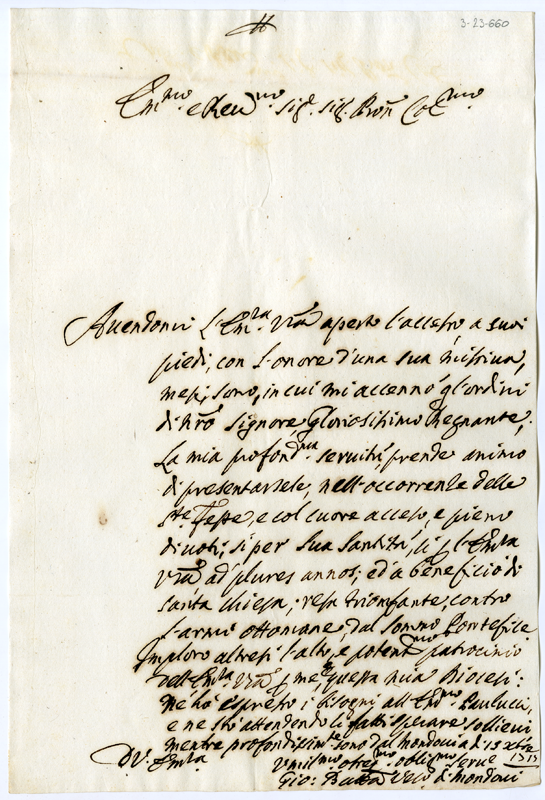 3-23-660
Em.mo e Reu.mo Sig.r Sig.r Pron Col.mo
Auendomi l'Em.za Vra aperto l'accesso, a suoi
piedi, con l'onore d'una sua missiua,
mesi, sono, in cui mi accennò gl'ordini
di Nro Signore, Gloriosissimo Regnante,
La mia profond.ma seruitù, prende animo
di presentarsele, nell'occorrenze delle
S.te Feste, e col cuore acceso, e pieno
di uoti, si per Sua Santità, si p l'Em.za
Vra ad plures annos; ed a beneficio di
Santa Chiesa, resa trionfante, contro
l'armi ottomane, dal sommo Pontefice
Imploro altresi l'alto, e potent.mo patrocinio
dell'Em.za Vra p me, e questa mia Diocesi:
ne hà espresso i bisogni all'Em.mo Paulucci,
e ne stò attendendo
mentre profondissim.te sono dal Mondouì a di 13 xbre 1717
D V. Em.za
Umil.mo obligmo serue
Gio: Batta Vesc.o di Mondouì